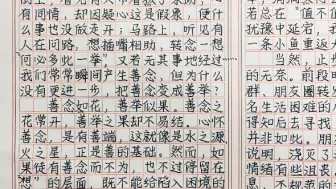 心有同情，却因疑心这是假象，便什
么事也没放弃；马路上，听见有
人在问路，想插嘴相助，转念一想
“何必多此一举”，又若无其事地经过……
我们常常瞬间产生善念，但为什么
没有更进一步，把善念变成善举？
善念如花，善举似果。善念之
花常开，善举之果却不易结。心怀
善念，是有善端，这就像是水之源
火之星，正是善的基础。然而，如
果徒有善念而不为，也不过得留在
“想”的层面，既不能给陷入困境的
若总在“值不
犹豫中延宕，
一条小鱼重返
当然，止步
的无奈。前段
群，朋友圈转
名生活困难的
得知后去寻找
并非如此。朋
说明，浇灭
情绪有些